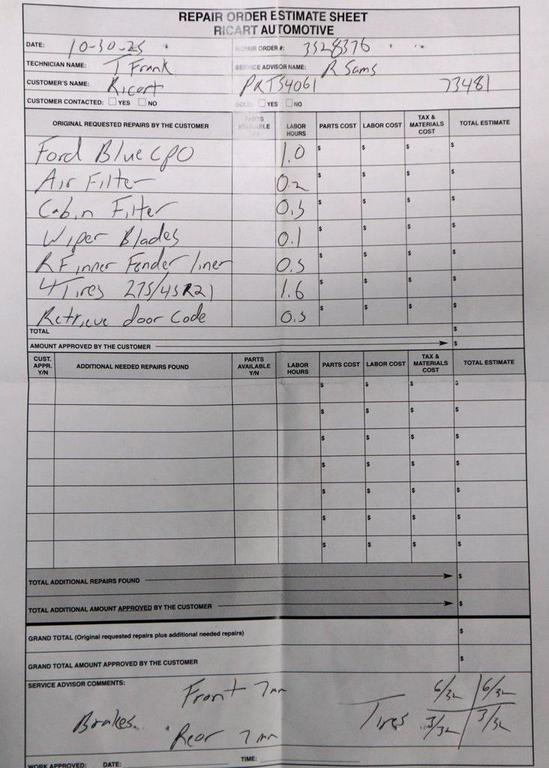 REPAIR ORDER ESTIMATE SHEET
RICART AUTOMOTIVE
DATE: 10-30-25 REPAIR ORDER #: 3528376
TECHNICIAN NAME: T Frank SERVICE ADVISOR NAME: R Sams
CUSTOMER'S NAME: Ricart PRTS4061 73481
CUSTOMER CONTACTED: YES NO SOLD: YES NO
ORIGINAL REQUESTED REPAIRS BY THE CUSTOMER PARTS AVAILABLE LABOR HOURS PARTS COST LABOR COST TAX & MATERIALS COST TOTAL ESTIMATE
Ford Blue CPO 1.0 $ $ $ $
Air Filter 0.2 $ $ $ $
Cabin Filter 0.3 $ $ $ $
Wiper Blades 0.1 $ $ $ $
RF inner Fender liner 0.5 $ $ $ $
4 Tires 275/45R21 1.6 $ $ $ $
Retrieve door Code 0.5 $ $ $ $
TOTAL $
AMOUNT APPROVED BY THE CUSTOMER $
CUST. APPR. Y/N ADDITIONAL NEEDED REPAIRS FOUND PARTS AVAILABLE Y/N LABOR HOURS PARTS COST LABOR COST TAX & MATERIALS COST TOTAL ESTIMATE
$ $ $ $
$ $ $ $
$ $ $ $
$ $ $ $
$ $ $ $
$ $ $ $
$ $ $ $
TOTAL ADDITIONAL REPAIRS FOUND $
TOTAL ADDITIONAL AMOUNT APPROVED BY THE CUSTOMER $
GRAND TOTAL (Original requested repairs plus additional needed repairs) $
GRAND TOTAL AMOUNT APPROVED BY THE CUSTOMER $
SERVICE ADVISOR COMMENTS:
Brakes Front 7mm
Rear 7mm
Tires 6/32 6/32
3/32 3/32
WORK APPROVED: DATE: TIME: